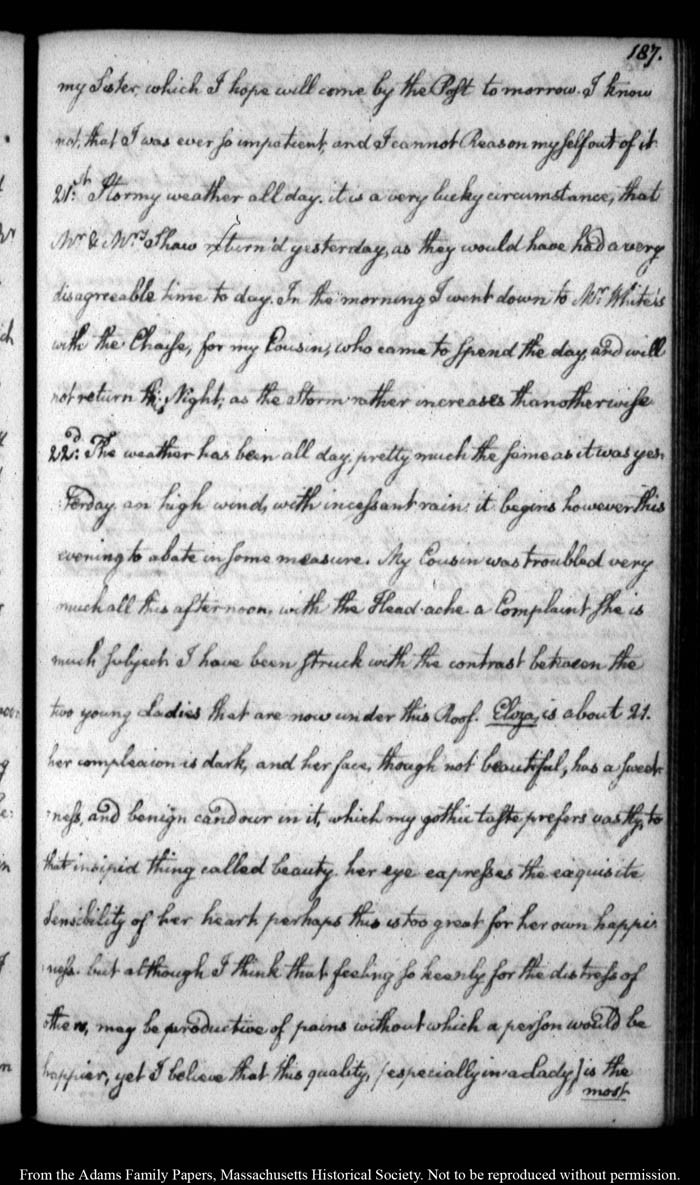 187.
my Sister, which I hope will come by the Post to morrow. I know
not, that I was ever so impatient, and I cannot Reason myself out of it
21.st Stormy weather all day. it is a very lucky circumstance, that
Mr. & Mrs. Shaw return'd yesterday, as they would have had a very
disagreeable time to day. In the morning I went down to Mr. White's
with the Chaise, for my Cousin, who came to spend the day, and will
not return this Night, as the Storm rather increases than otherwise
22d: The weather has been all day, pretty much the same as it was yes-
terday an high wind, with incessant rain: it begins however this
evening to abate in some measure. My Cousin was troubled very
much all this afternoon, with the Head-ache a Complaint she is
much subject. I have been struck with the contrast between the
two young Ladies that are now under this Roof. Eliza, is about 21.
her compleaion is dark, and her face, though not beautiful, has a sweet-
-ness, and benign candour in it, which my gothic taste prefers vastly, to
that insipid thing called beauty. her eye expresses the exquisite
Sensibility of her heart, perhaps this is too great for her own happi-
-ness. but although I think that feeling so keenly for the distress of
others, may be productive of pains without which a person would be
happier, yet I believe that this quality, (especially in a Lady) is the
most
From the Adams Family Papers, Massachusetts Historical Society. Not to be reproduced without permission.